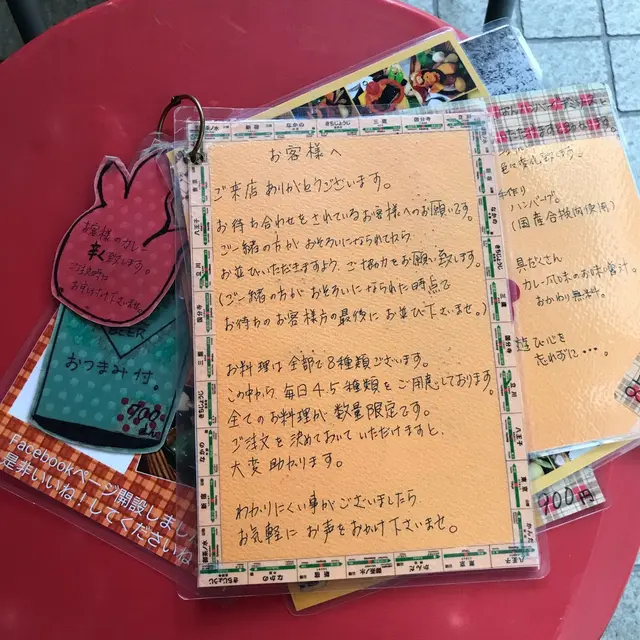 お客様へ
ご来店ありがとうございます。
お待ち合わせをされているお客様へのお願いです。
ご一緒の方がおそろいになられてから
お並びいただきますよう、ご協力をお願い致します。
(ご一緒の方がおそろいになられた時点で
お待ちのお客様方の最後にお並び下さいませ。)
お料理は全部で8種類ございます。
この中から毎日4.5種類をご用意しております。
全てのお料理が数量限定です。
ご注文を決めておいていただけますと、
大変助かります。
わかりにくい事がございましたら
お気軽にお声をおかけ下さいませ。
お客様のカレー
辛く致します。
ご注文時に
お申付け下さいませ
BEER
おつまみ付。
Facebookページ開設しまし
是非いいね!してくださいね
手作り
ハンバーグ。
(国産合挽肉使用)
具だくさん
カレー風味のお味噌汁。
おかわり無料。
遊び心を
忘れずに・・・。
900円